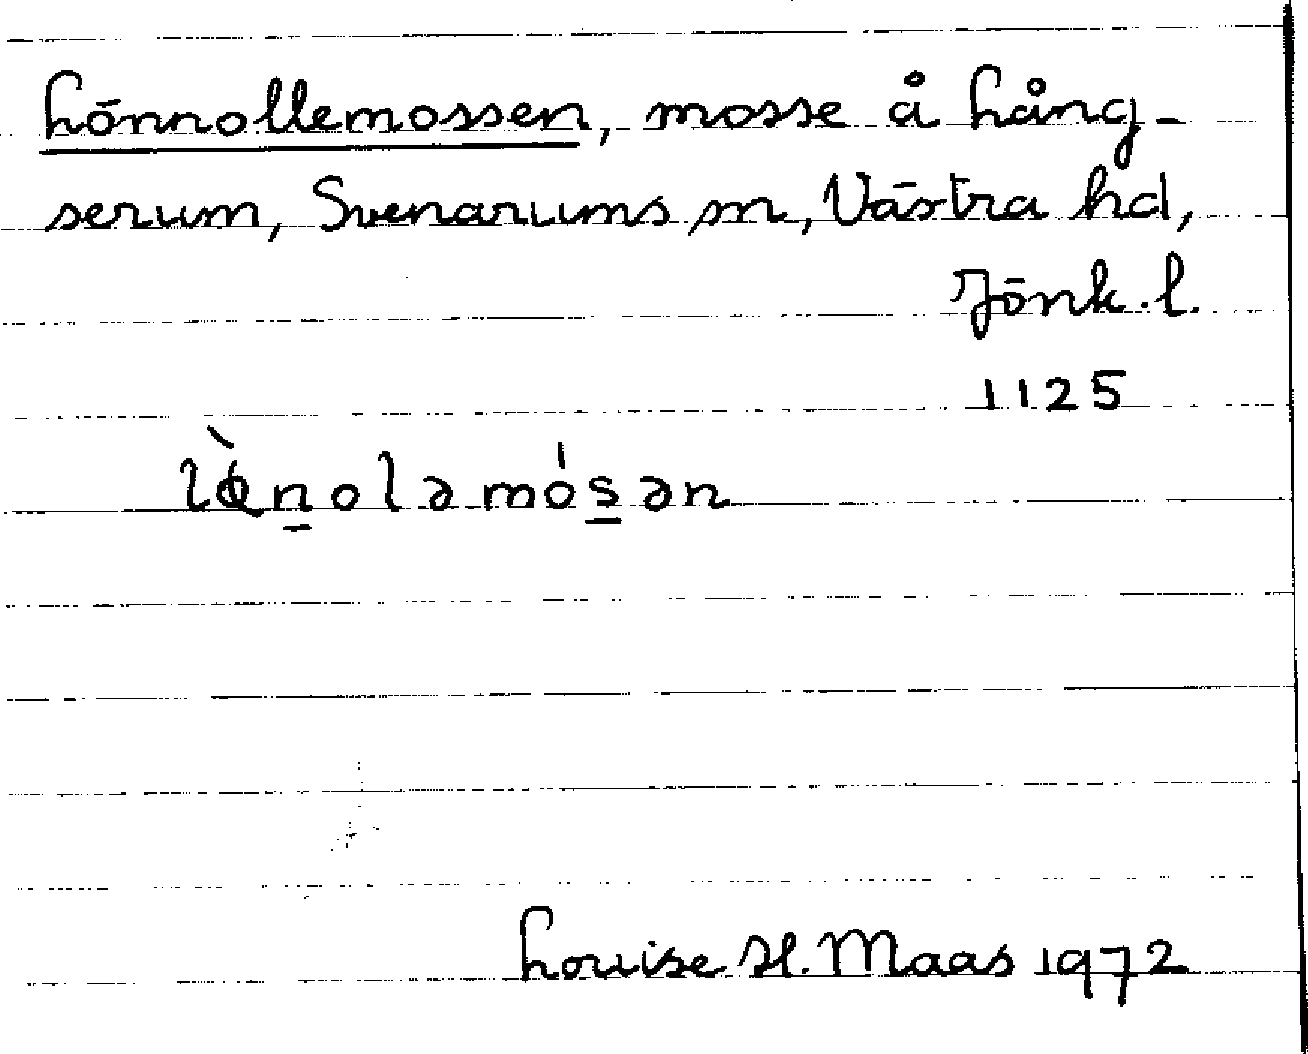 Lönnollemossen, mosse å Lång-
serum, Svenarums sn, Västra hd,
Jönk. l.
1125
Louise H. Maas 1972